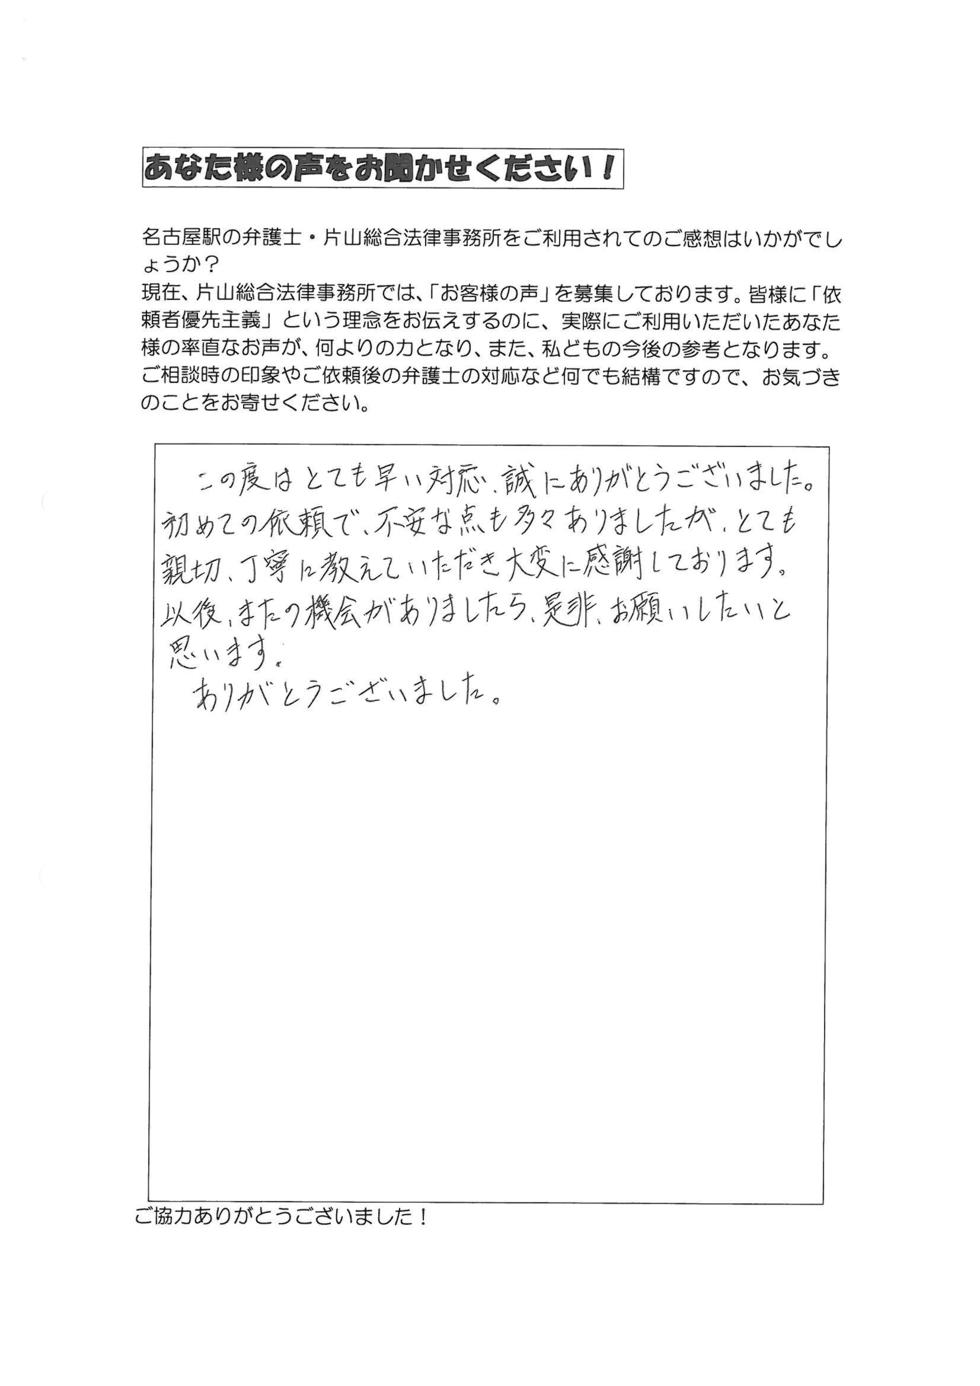 あなた様の声をお聞かせください！
名古屋駅の弁護士・片山総合法律事務所をご利用されてのご感想はいかがでし
ょうか？
現在、片山総合法律事務所では、「お客様の声」を募集しております。皆様に「依
頼者優先主義」という理念をお伝えするのに、実際にご利用いただいたあなた
様の率直なお声が、何よりの力となり、また、私どもの今後の参考となります。
ご相談時の印象やご依頼後の弁護士の対応など何でも結構ですので、お気づき
のことをお寄せください。
この度はとても早い対応、誠にありがとうございました。
初めての依頼で、不安な点も多々ありましたが、とても
親切、丁寧に教えていただき大変に感謝しております。
以後、またの機会がありましたら、是非、お願いしたいと
思います。
ありがとうございました。
ご協力ありがとうございました！